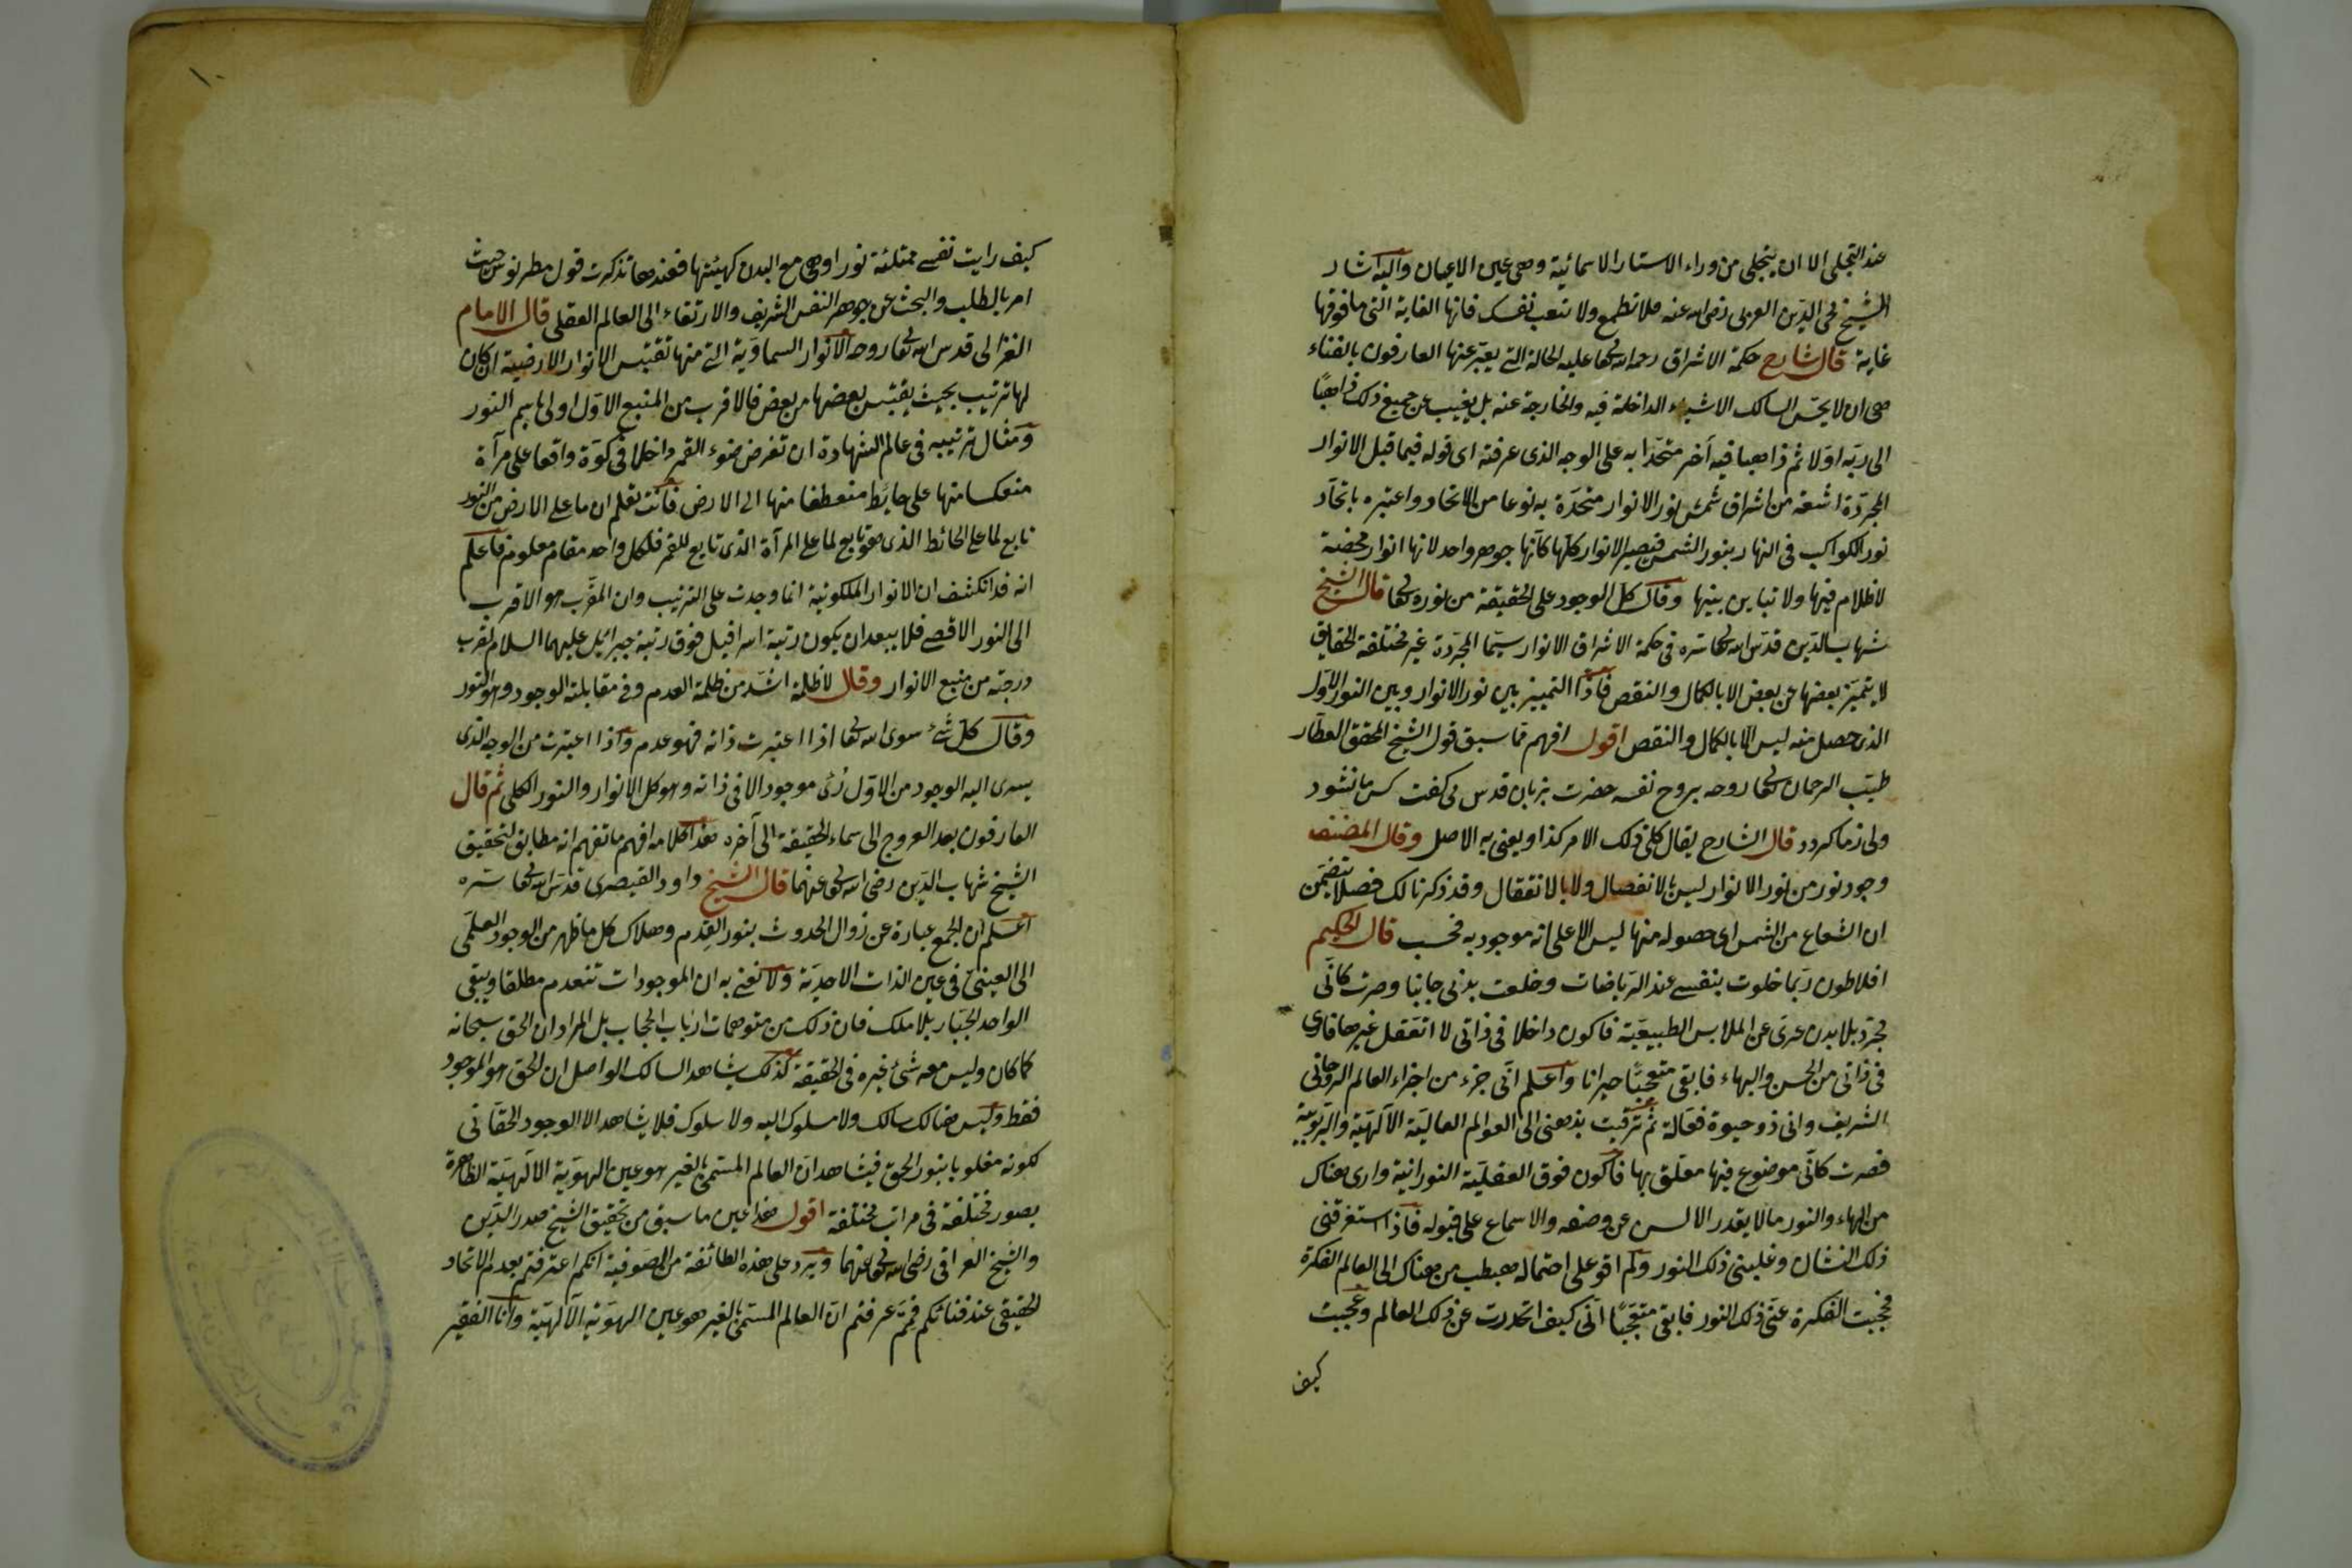 عند التجلى الا ان يتجلى من وراء الاستار الاسمائية وهى عين الاعيان واليه اشار
الشيخ محى الدين العربى رضى الله عنه فلا تطمع ولا تتعب نفسك فانها الغاية التى ما فوقها
غاية قال شارح حكمة الاشراق رحمة الله تعالى عليه الحالة التى يعبّر عنها العارفون بالفناء
هى ان لا يحسّ السالك الاشياء الداخلة فيه والخارجة عنه بل يغيب عن جميع ذلك ذاهبًا
الى ربّه اولا ثم ذاهبا فيه آخر متحدا به على الوجه الذى عرفته اى قوله فيما قبل الانوار
المجرّدة اشعة من اشراق شمس نور الانوار متحدة به نوعا من الاتحاد واعتبره باتحاد
نور الكواكب فى النهار بنور الشمس فتصير الانوار كلّها كانّها جوهر واحد لانها انوار محضة
لا ظلام فيها ولا تباين بينها وقال كل الوجود على الحقيقة من نوره تعالى قال الشيخ
شهاب الدّين قدّس الله تعالى سره فى حكمة الاشراق الانوار سيّما المجرّدة غير مختلفة الحقايق
لا يتميّز بعضها عن بعض الا بالكمال والنقص فاذًا التمييز بين نور الانوار وبين النور الاوّل
الذى حصل منه ليس الّا بالكمال والنقص اقول افهم مما سبق قول الشيخ المحقق العطّار
طيّب الرحمان تعالى روحه بروح نفسه حضرت بزبان قدس مى كفت كس ما نشود
ولى زما كردد قال الشارح يقال كلىّ ذلك الامر كذا ويعنى به الاصل وقال المصنف
وجود نور من نور الانوار ليس بالانفصال ولا بالانتقال وقد ذكرنا لك فصلا يتضمّن
ان الشعاع من الشمس اى حصوله منها ليس الا على انه موجود به فحسب قال الحكيم
افلاطون ربّما خلوت بنفسى عند الرّياضات وخلعت بدنى جانبا وصرت كانّى
مجرّد بلا بدن عرىّ عن الملابس الطبيعيّة فاكون داخلا فى ذاتى لا اتعقل غيرها فارى
فى ذاتى من الحسن والبهاء فابقى متعجّبًا حيرانا واعلم انّى جزء من اجزاء العالم الروحانى
الشريف وانى ذو حيوة فعّالة ثم ترقيت بذهنى الى العوالم العالية الآلهيّة والربوبية
فصرت كانّى موضوع فيها معلّق بها فاكون فوق العقليّة النورانية وارى هناك
من البهاء والنور ما لا يقدر الالسن عن وصفه والاسماع على قبوله فاذا استغرقنى
ذلك الشان وغلبنى ذلك النور ولم اقو على احتماله هبطت من هناك الى العالم الفكرة
فحجبت الفكرة عنّى ذلك النور فابقى متعجّبًا انّى كيف انحدرت عن ذلك العالم وعجبت
كيف
كيف رايت نفسى ممتلئة نورا وهى مع البدن كهيئتها فعندها تذكرت قول مطرنوس حيث
امر بالطلب والبحث عن جوهر النفس الشريف والارتقاء الى العالم العقلى قال الامام
الغزالى قدس الله تعالى روحه الانوار السماويّة التى منها تقتبس الانوار الارضية ان كان
لها ترتيب بحيث يقتبس بعضها من بعض فالاقرب من المنبع الاوّل اولى باسم النور
ومثال ترتيبه فى عالم الشهادة ان تفرض ضوء القمر داخلا فى كوّة واقعا على مرآة
منعكسا منها على حايط منعطفا منها الى الارض فانت تعلم ان ما على الارض من النور
تابع لما على الحائط الذى هو تابع لما على المرآة الذى تابع للقمر فلكل واحد مقام معلوم فاعلم
انه قد انكشف ان الانوار الملكوتية انما وجدت على الترتيب وان المقرّب هو الاقرب
الى النور الاقصى فلا يبعد ان يكون رتبة اسرافيل فوق رتبة جبرائيل عليهما السلام لقرب
درجته من منبع الانوار وقال لا ظلمة اشدّ من ظلمة العدم وفى مقابلته الوجود وهو النور
وقال كل شئ سوى الله تعالى اذا اعتبرت ذاته فهو عدم واذا اعتبرت من الوجه الذى
يسرى اليه الوجود من الاوّل رُئى موجودا لا فى ذاته وهو كل الانوار والنور الكلى ثم قال
العارفون بعد العروج الى سماء الحقيقة الى آخره هذا كلامه افهم ما تفهم انه مطابق لتحقيق
الشيخ شهاب الدّين رضى الله تعالى عنهما قال الشيخ داود القيصرى قدس الله تعالى سرّه
اعلم ان الجمع عبارة عن زوال الحدوث بنور القدم وهلاك كل ما ظهر من الوجود العلمى
الى العينىّ فى عين الذات الاحديّة ولا نعنى به ان الموجودات تنعدم مطلقا ويبقى
الواحد الجبّار بلا ملك فان ذلك من متوهمات ارباب الحجاب بل المراد ان الحق سبحانه
كما كان وليس معه شئ غيره فى الحقيقة كذلك يشاهد السالك الواصل ان الحق هو الموجود
فقط وليس هنالك سالك ولا مسلوك اليه ولا سلوك فلا يشاهد الا الوجود الحقّانى
لكونه مغلوبا بنور الحق فيشاهد ان العالم المسمّى بالغير هو عين الهويّة الالهيّة الظاهرة
بصور مختلفة فى مراتب مختلفة اقول هذا عين ما سبق من تحقيق الشيخ صدر الدّين
والشيخ العراقى رضى الله تعالى عنهما ويرد على هذه الطائفة من الصوفية انكم اعترفتم بعدم الاتحاد
الحقيقى عند فنائكم فممّ عرفتم انّ العالم المسمى بالغير هو عين الهويّة الآلهيّة وانا الفقير